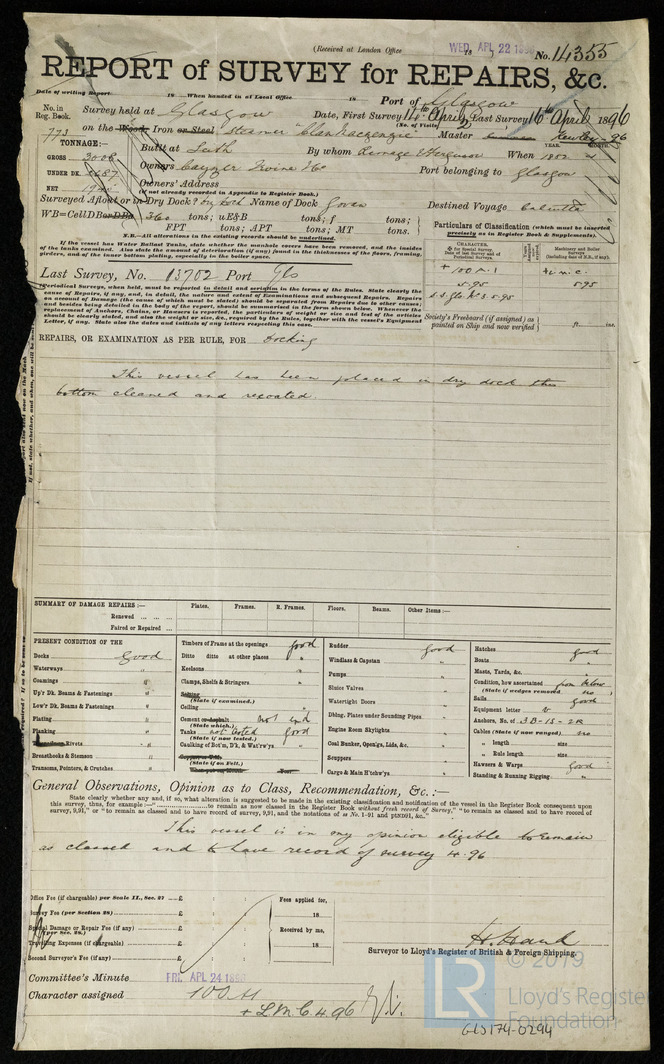 (Received at London Office WED. APL 22 18 No. 14355
REPORT of SURVEY for REPAIRS, &c.
Date of writing Report 18 When handed in at Local Office 18 Port of Glasgow
No. in Reg. Book. Survey held at Glasgow Date, First Survey 14th April Last Survey 16th April 1896
(No. of Visits 2)
773 on the Wood, Iron or Steel Steamer "Clan Mackenzie" Master
TONNAGE:— Built at Leith By whom Ramage & Ferguson When 1882
YEAR. MONTH.
GROSS Owners Cayzer Irvine & Co Port belonging to Glasgow
UNDER DK. 2687 Owners' Address
(if not already recorded in Appendix to Register Book.)
NET
Surveyed Afloat or in Dry Dock? Dry Dock Name of Dock Govan Destined Voyage Calcutta
WB=CellDBorDBa 360 tons; uE&B tons; f tons;
FPT tons; APT tons; MT tons.
N.B.—All alterations in the existing records should be underlined.
Particulars of Classification (which must be inserted precisely as in Register Book & Supplements).
If the vessel has Water Ballast Tanks, state whether the manhole covers have been removed, and the insides of the tanks examined. Also state the amount of deterioration (if any) found in the thicknesses of the floors, framing, girders, and of the inner bottom plating, especially in the boiler space.
CHARACTER,
Machinery and Boiler Surveys
+ 100 A.1 + L.M.C.
5.95 5.95
s.s. Gls No 3-5.95
Last Survey, No. 13702 Port Gls
Periodical Surveys, when held, must be reported in detail and seriatim in the terms of the Rules. State clearly the cause of Repairs, if any, and, in detail, the nature and extent of Examinations and subsequent Repairs. Repairs on account of Damage (the cause of which must be stated) should be separated from Repairs due to other causes; and besides being detailed in the body of the report, should be summarised in the form given below. Whenever the replacement of Anchors, Chains, or Hawsers is reported, the particulars of weight or size and test of the articles should be clearly stated, and also the weight or size, &c., required by the Rules, together with the vessel's Equipment Letter, if any. State also the dates and initials of any letters respecting this case.
Society's Freeboard (if assigned) as painted on Ship and now verified ft. ins.
REPAIRS, OR EXAMINATION AS PER RULE, FOR Docking
This vessel has been placed in dry dock the
bottom cleaned and recoated.
SUMMARY OF DAMAGE REPAIRS:— Plates. Frames. R. Frames. Floors. Beams. Other Items:—
Renewed
Faired or Repaired
PRESENT CONDITION OF THE
Decks good
Waterways "
Coamings "
Up'r Dk. Beams & Fastenings "
Low'r Dk. Beams & Fastenings "
Plating "
Planking "
Rivets "
Breasthooks & Stemson "
Transoms, Pointers, & Crutches "
Timbers of Frame at the openings good
Ditto ditto at other places "
Keelsons "
Clamps, Shelfs & Stringers "
Salting
(State if examined.)
Ceiling
Cement or Asphalt not
(State which.)
Tanks not tested good
(State if now tested.)
Caulking of Bot'm, D'k, & Wat'rw'ys "
(State if on Felt.)
Rudder good
Windlass & Capstan "
Pumps "
Sluice Valves "
Watertight Doors "
Dblng. Plates under Sounding Pipes "
Engine Room Skylights "
Coal Bunker, Open'gs, Lids, &c. "
Scuppers "
Cargo & Main H'tchw'ys "
Hatches good
Boats "
Masts, Yards, &c. "
Condition, how ascertained from below
(State if wedges removed) no
Sails good
Equipment letter
Anchors, No. of 3B-1S-2K
Cables (State if now ranged) no
„ length size
„ Rule length size
Hawsers & Warps good
Standing & Running Rigging "
General Observations, Opinion as to Class, Recommendation, &c.:—
State clearly whether any, and if so, what alteration is suggested to be made in the existing classification and notification of the vessel in the Register Book consequent upon this survey, thus, for example:—" to remain as now classed in the Register Book without fresh record of Survey," "to remain as classed and to have record of survey, 9,91," or "to remain as classed and to have record of survey, 9,91, and the notations of ss No. 1-91 and ptND91, &c."
This vessel is in my opinion eligible to remain
as classed and to have record of survey 4.96
Office Fee (if chargeable) per Scale II., Sec. 27 £ : :
Survey Fee (per Section 28) £ : :
Special Damage or Repair Fee (if any) £ : :
(per Sec. 28.)
Travelling Expenses (if chargeable) £ : :
Second Surveyor's Fee (if any) £ : :
Fees applied for,
18
Received by me,
18
Surveyor to Lloyd's Register of British & Foreign Shipping.
Committee's Minute FRI. APL 24 1896
Character assigned 100 A1
+ L.M.C. 4.96
© 2019
LR
Lloyd's Register
Foundation
GLS174-0294